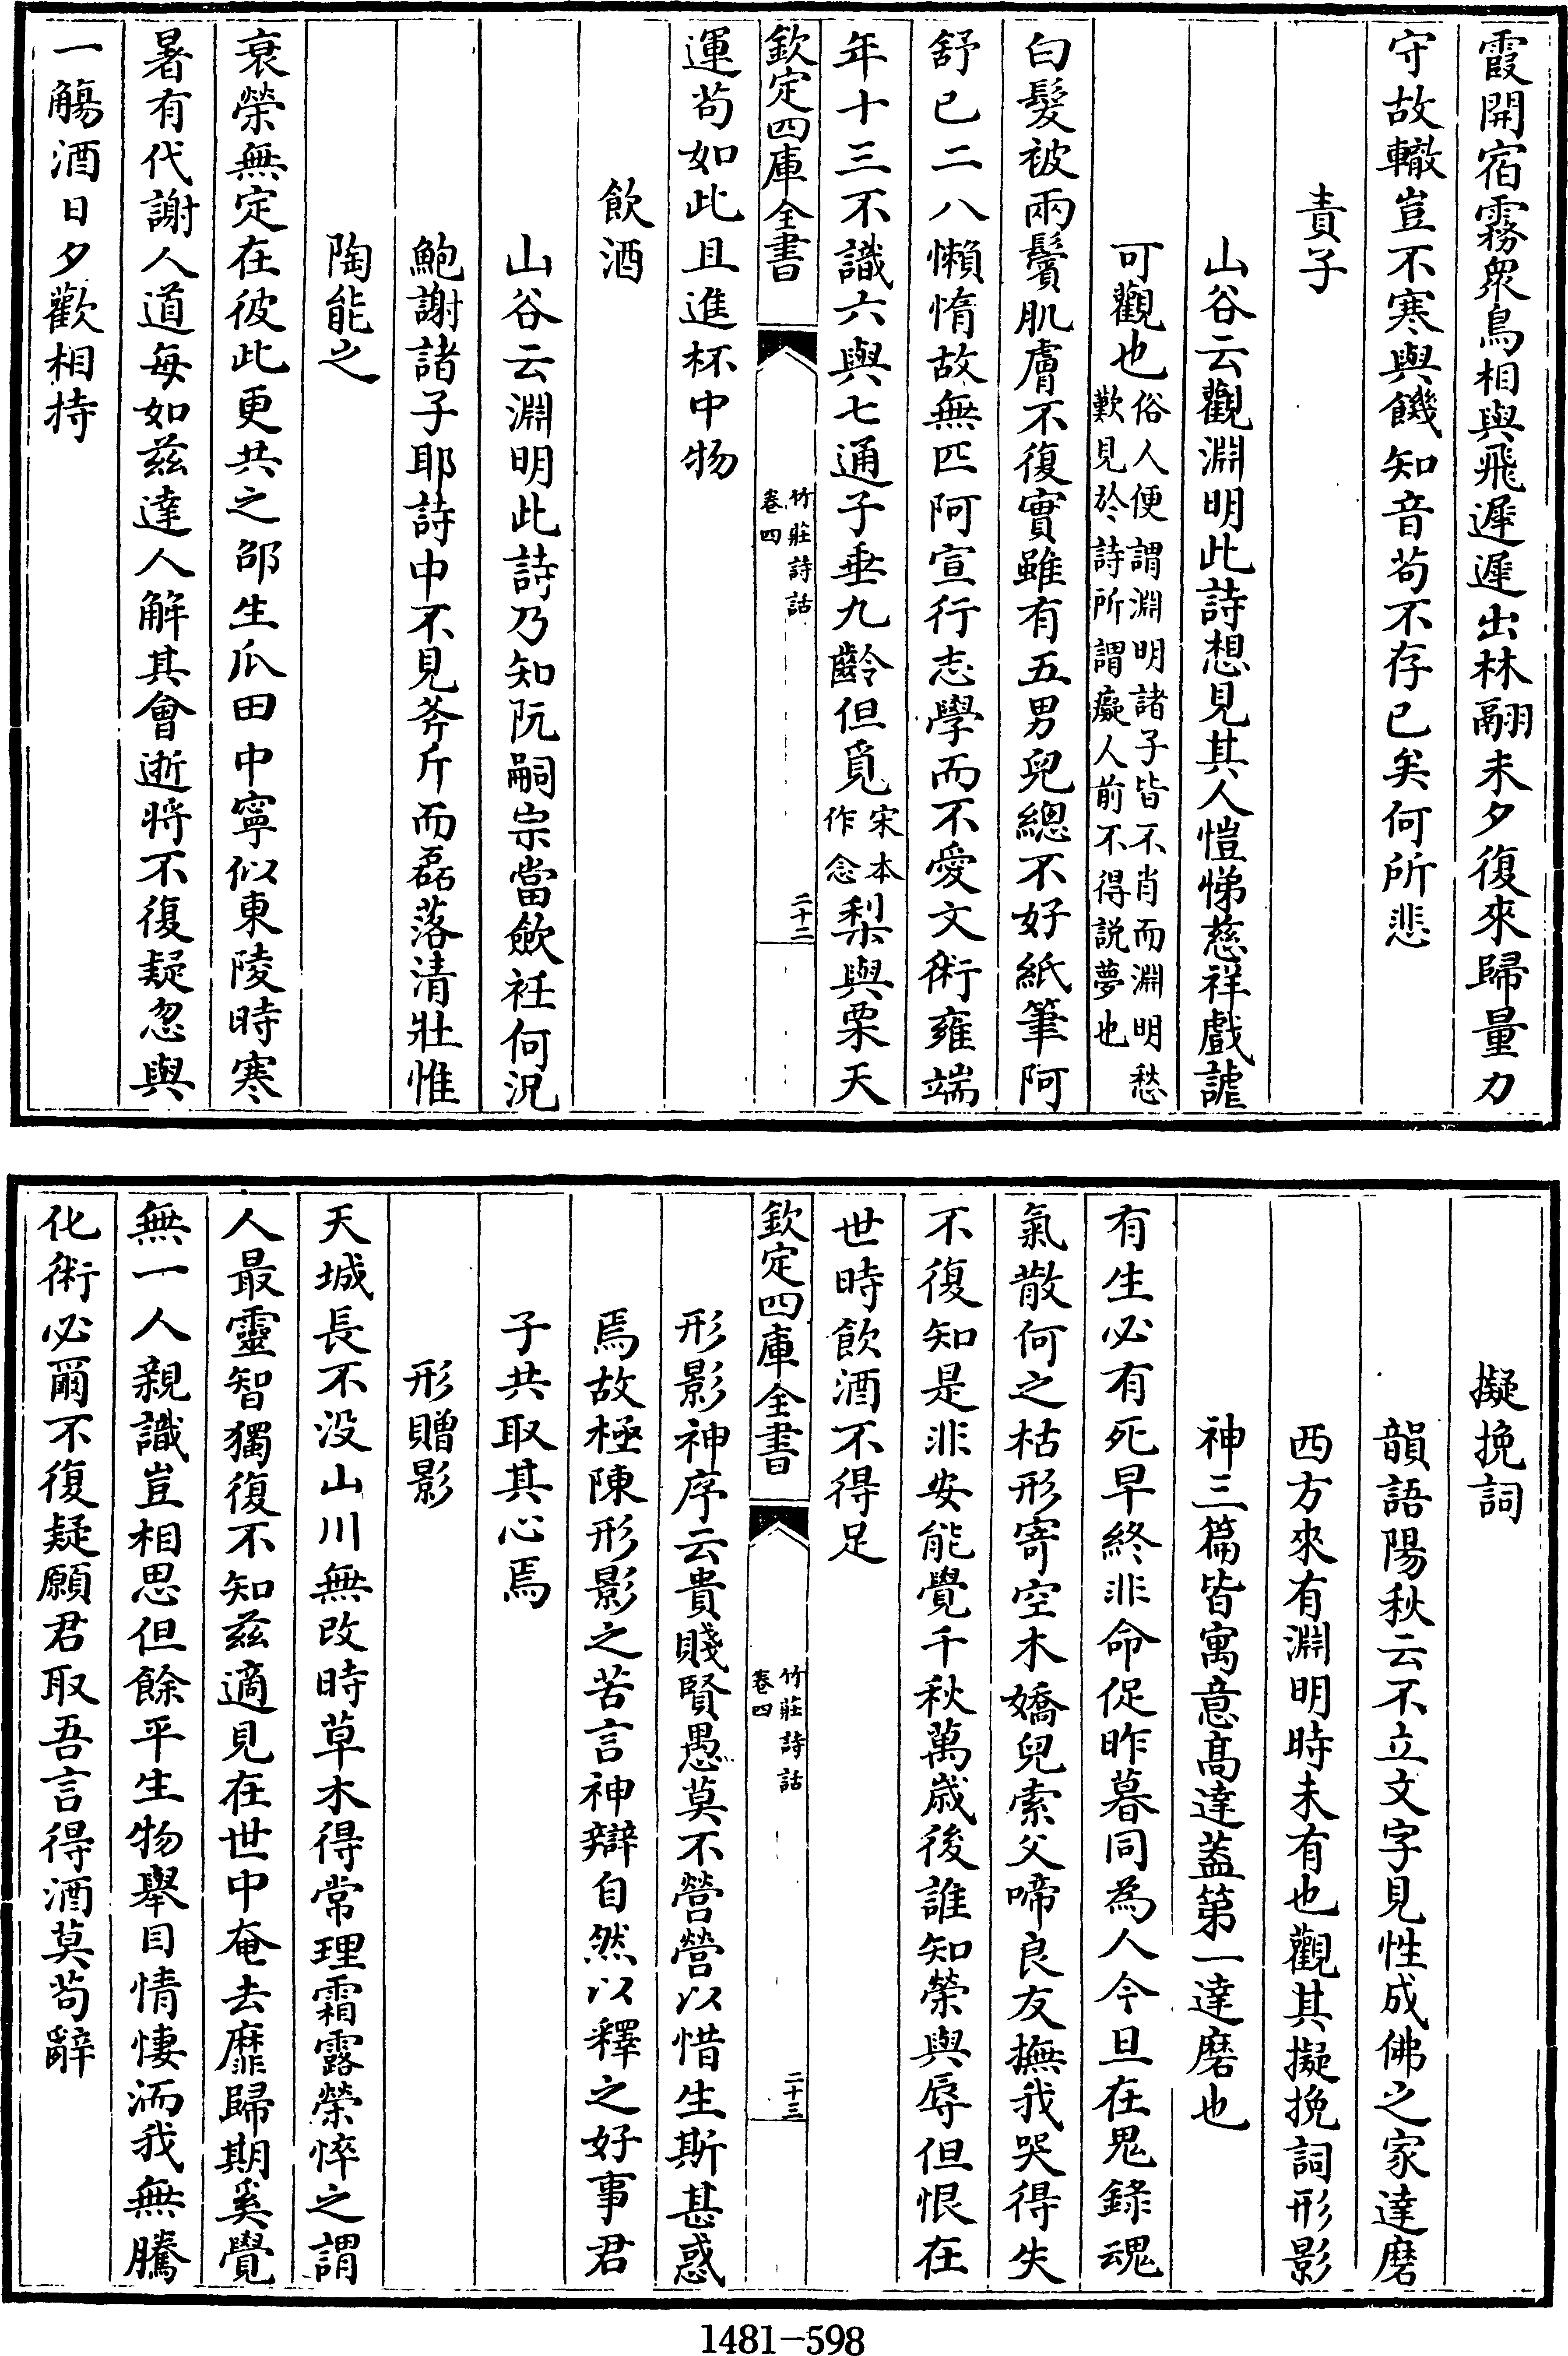 霞開宿霧衆鳥相與飛遲遲出林翮未夕復來歸量力
守故轍豈不寒與饑知音苟不存已矣何所悲
責子
山谷云觀淵明此詩想見其人愷悌慈祥戲謔
可觀也俗人便謂淵明諸子皆不肖而淵明愁
歎見於詩所謂癡人前不得説夢也
白髮被兩鬢肌膚不復實雖有五男兒總不好紙筆阿
舒已二八懶惰故無匹阿宣行志學而不愛文術雍端
年十三不識六與七通子垂九齡但覓宋本
作念梨與栗天
欽定四庫全書
竹莊詩話
卷四
二十二
運苟如此且進杯中物
飲酒
山谷云淵明此詩乃知阮嗣宗當斂衽何況
鮑謝諸子耶詩中不見斧斤而磊落清壯惟
陶能之
衰榮無定在彼此更共之邵生瓜田中寧似東陵時寒
暑有代謝人道每如兹達人解其會逝將不復疑忽與
一觴酒日夕歡相持
擬挽詞
韻語陽秋云不立文字見性成佛之家達磨
西方來有淵明時未有也觀其擬挽詞形影
神三篇皆寓意高達蓋第一達磨也
有生必有死早終非命促昨暮同為人今旦在鬼錄魂
氣散何之枯形寄空木嬌兒索父啼良友撫我哭得失
不復知是非安能覺千秋萬歲後誰知榮與辱但恨在
世時飲酒不得足
欽定四庫全書
竹莊詩話
卷四
二十三
形影神序云貴賤賢愚莫不營營以惜生斯甚惑
焉故極陳形影之苦言神辯自然以釋之好事君
子共取其心焉
形贈影
天城長不没山川無改時草木得常理霜露榮悴之謂
人最靈智獨復不知兹適見在世中奄去靡歸期奚覺
無一人親識豈相思但餘平生物舉目情悽洏我無騰
化術必爾不復疑願君取吾言得酒莫苟辭
1481-598